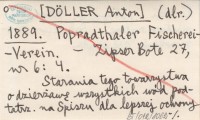 [DÖLLER Anton] (dlr.)
1889. Popradthaler Fischerei-
-Verein. - Zipser Bote 27,
nr 6: 4.
Starania tego towarzystwa
o dzierżawę wszystkich wód pod-
tatrz. na Spiszu dla lepszej ochrony